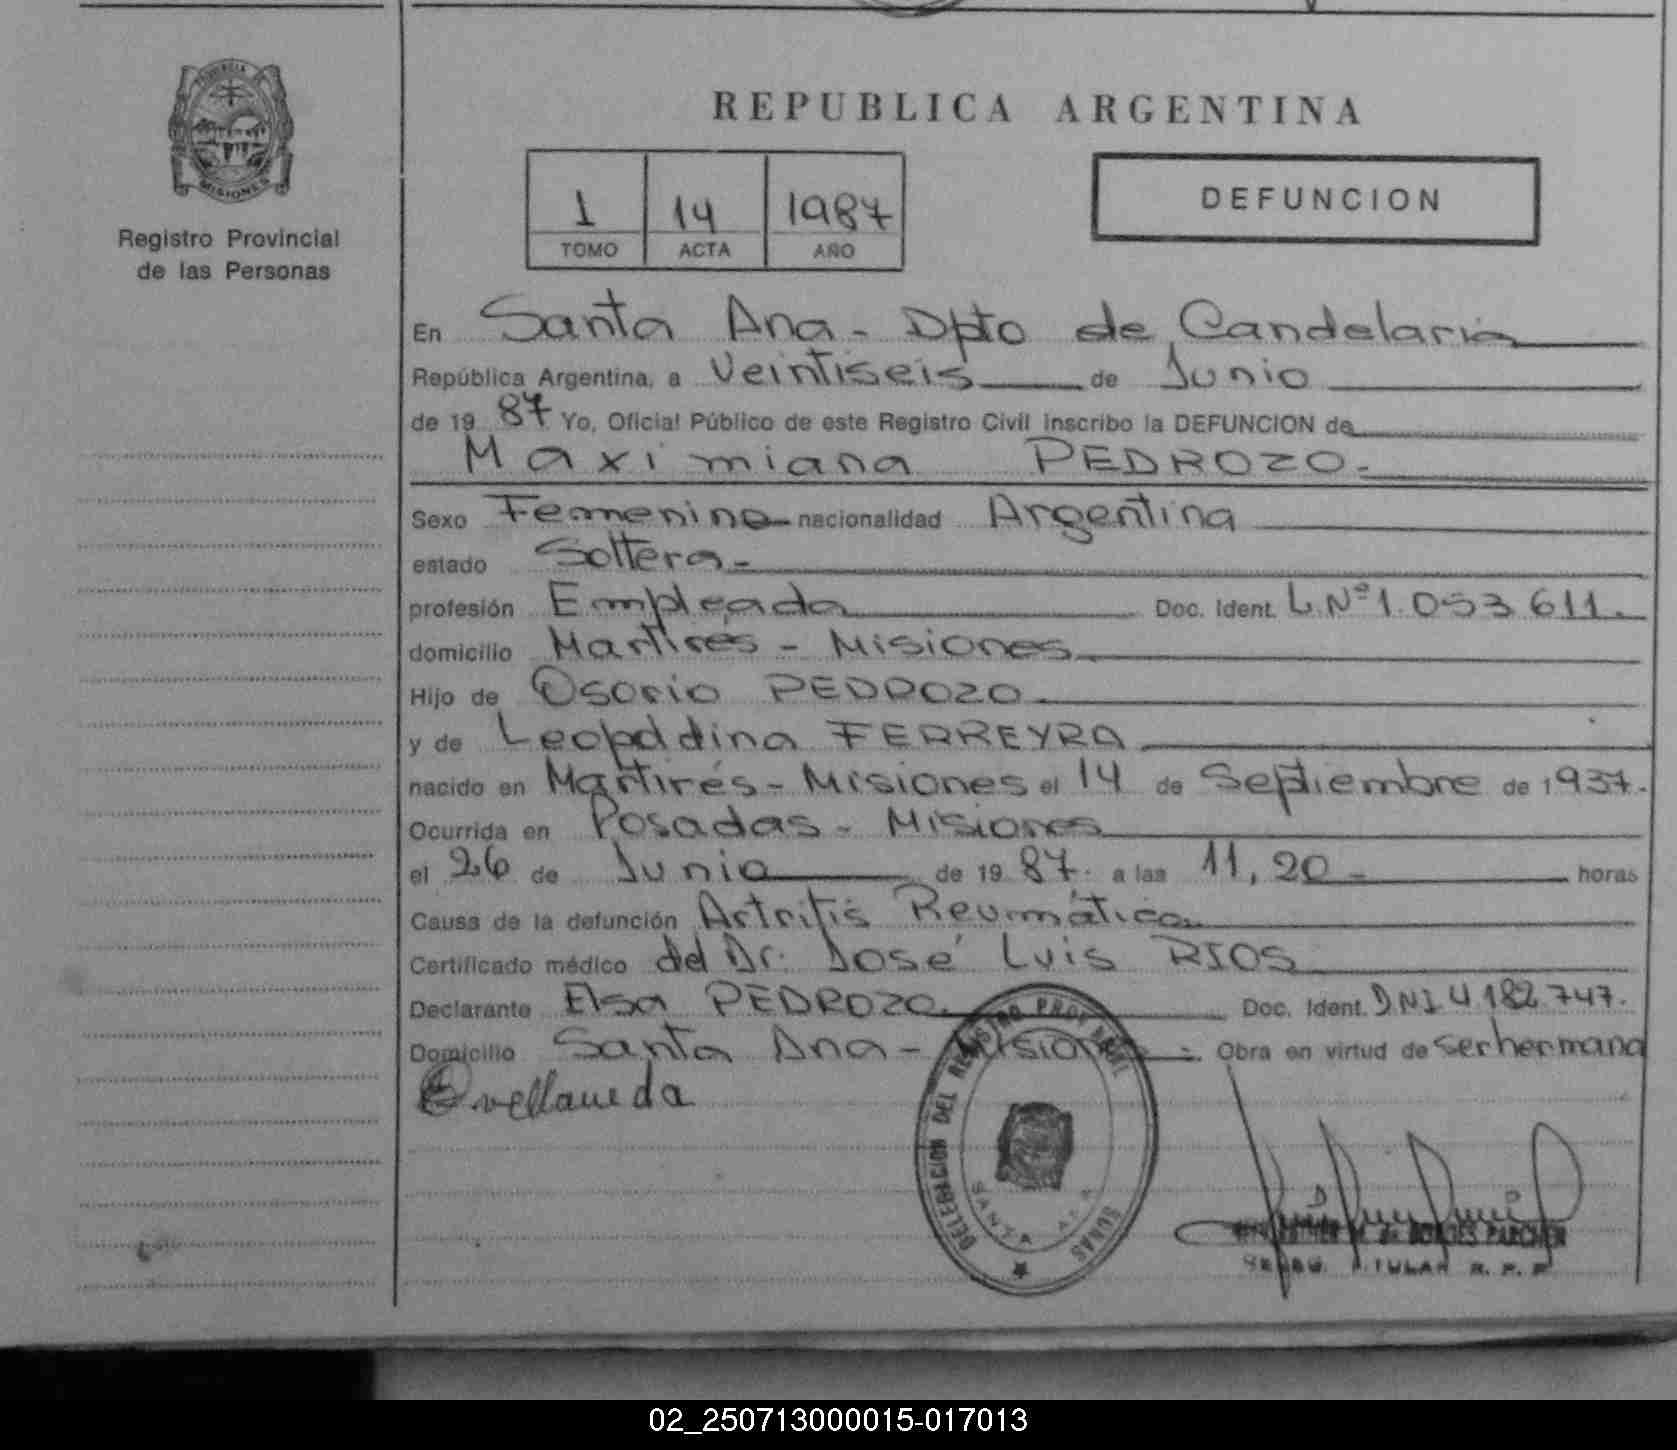 PROVINCIA
MISIONES
Registro Provincial
de las Personas
REPUBLICA ARGENTINA
1 14 1987
TOMO ACTA AÑO
DEFUNCION
En Santa Ana - Dpto de Candelaria
República Argentina, a Veintiseis de Junio
de 19 87 Yo, Oficial Público de este Registro Civil inscribo la DEFUNCION de
Maximiana PEDROZO.
Sexo Femenino nacionalidad Argentina
estado Soltera -
profesión Empleada Doc. Ident. L.Nº 1.053.611.
domicilio Martirés - Misiones
Hijo de Osorio PEDROZO
y de Leopoldina FERREYRA
nacido en Martirés - Misiones el 14 de Septiembre de 1937.
Ocurrida en Posadas - Misiones
el 26 de Junio de 19 87. a las 11,20 - horas
Causa de la defunción Artritis Reumática
Certificado médico del Dr. José Luis RIOS
Declarante Elsa PEDROZO. Doc. Ident. DNI 4.182.747.
Domicilio Santa Ana - Misiones - Obra en virtud de ser hermana
DELEGACION DEL REGISTRO PROVINCIAL
SANTA ANA
R. P. P.
02_250713000015-017013